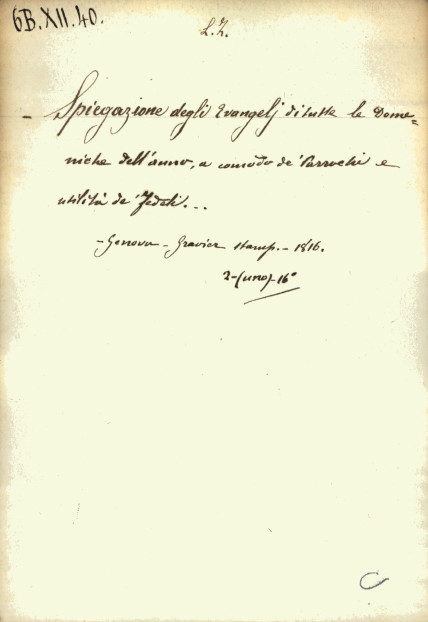 6B.XII.40.
L.Z.
- Spiegazione degli Evangelj di tutte le Dome=
niche dell'anno, a comodo de' Parrochi e
utilità de' Fedeli...
- Genova - Gravier stamp. - 1816.
2 - (uno) - 16°
C